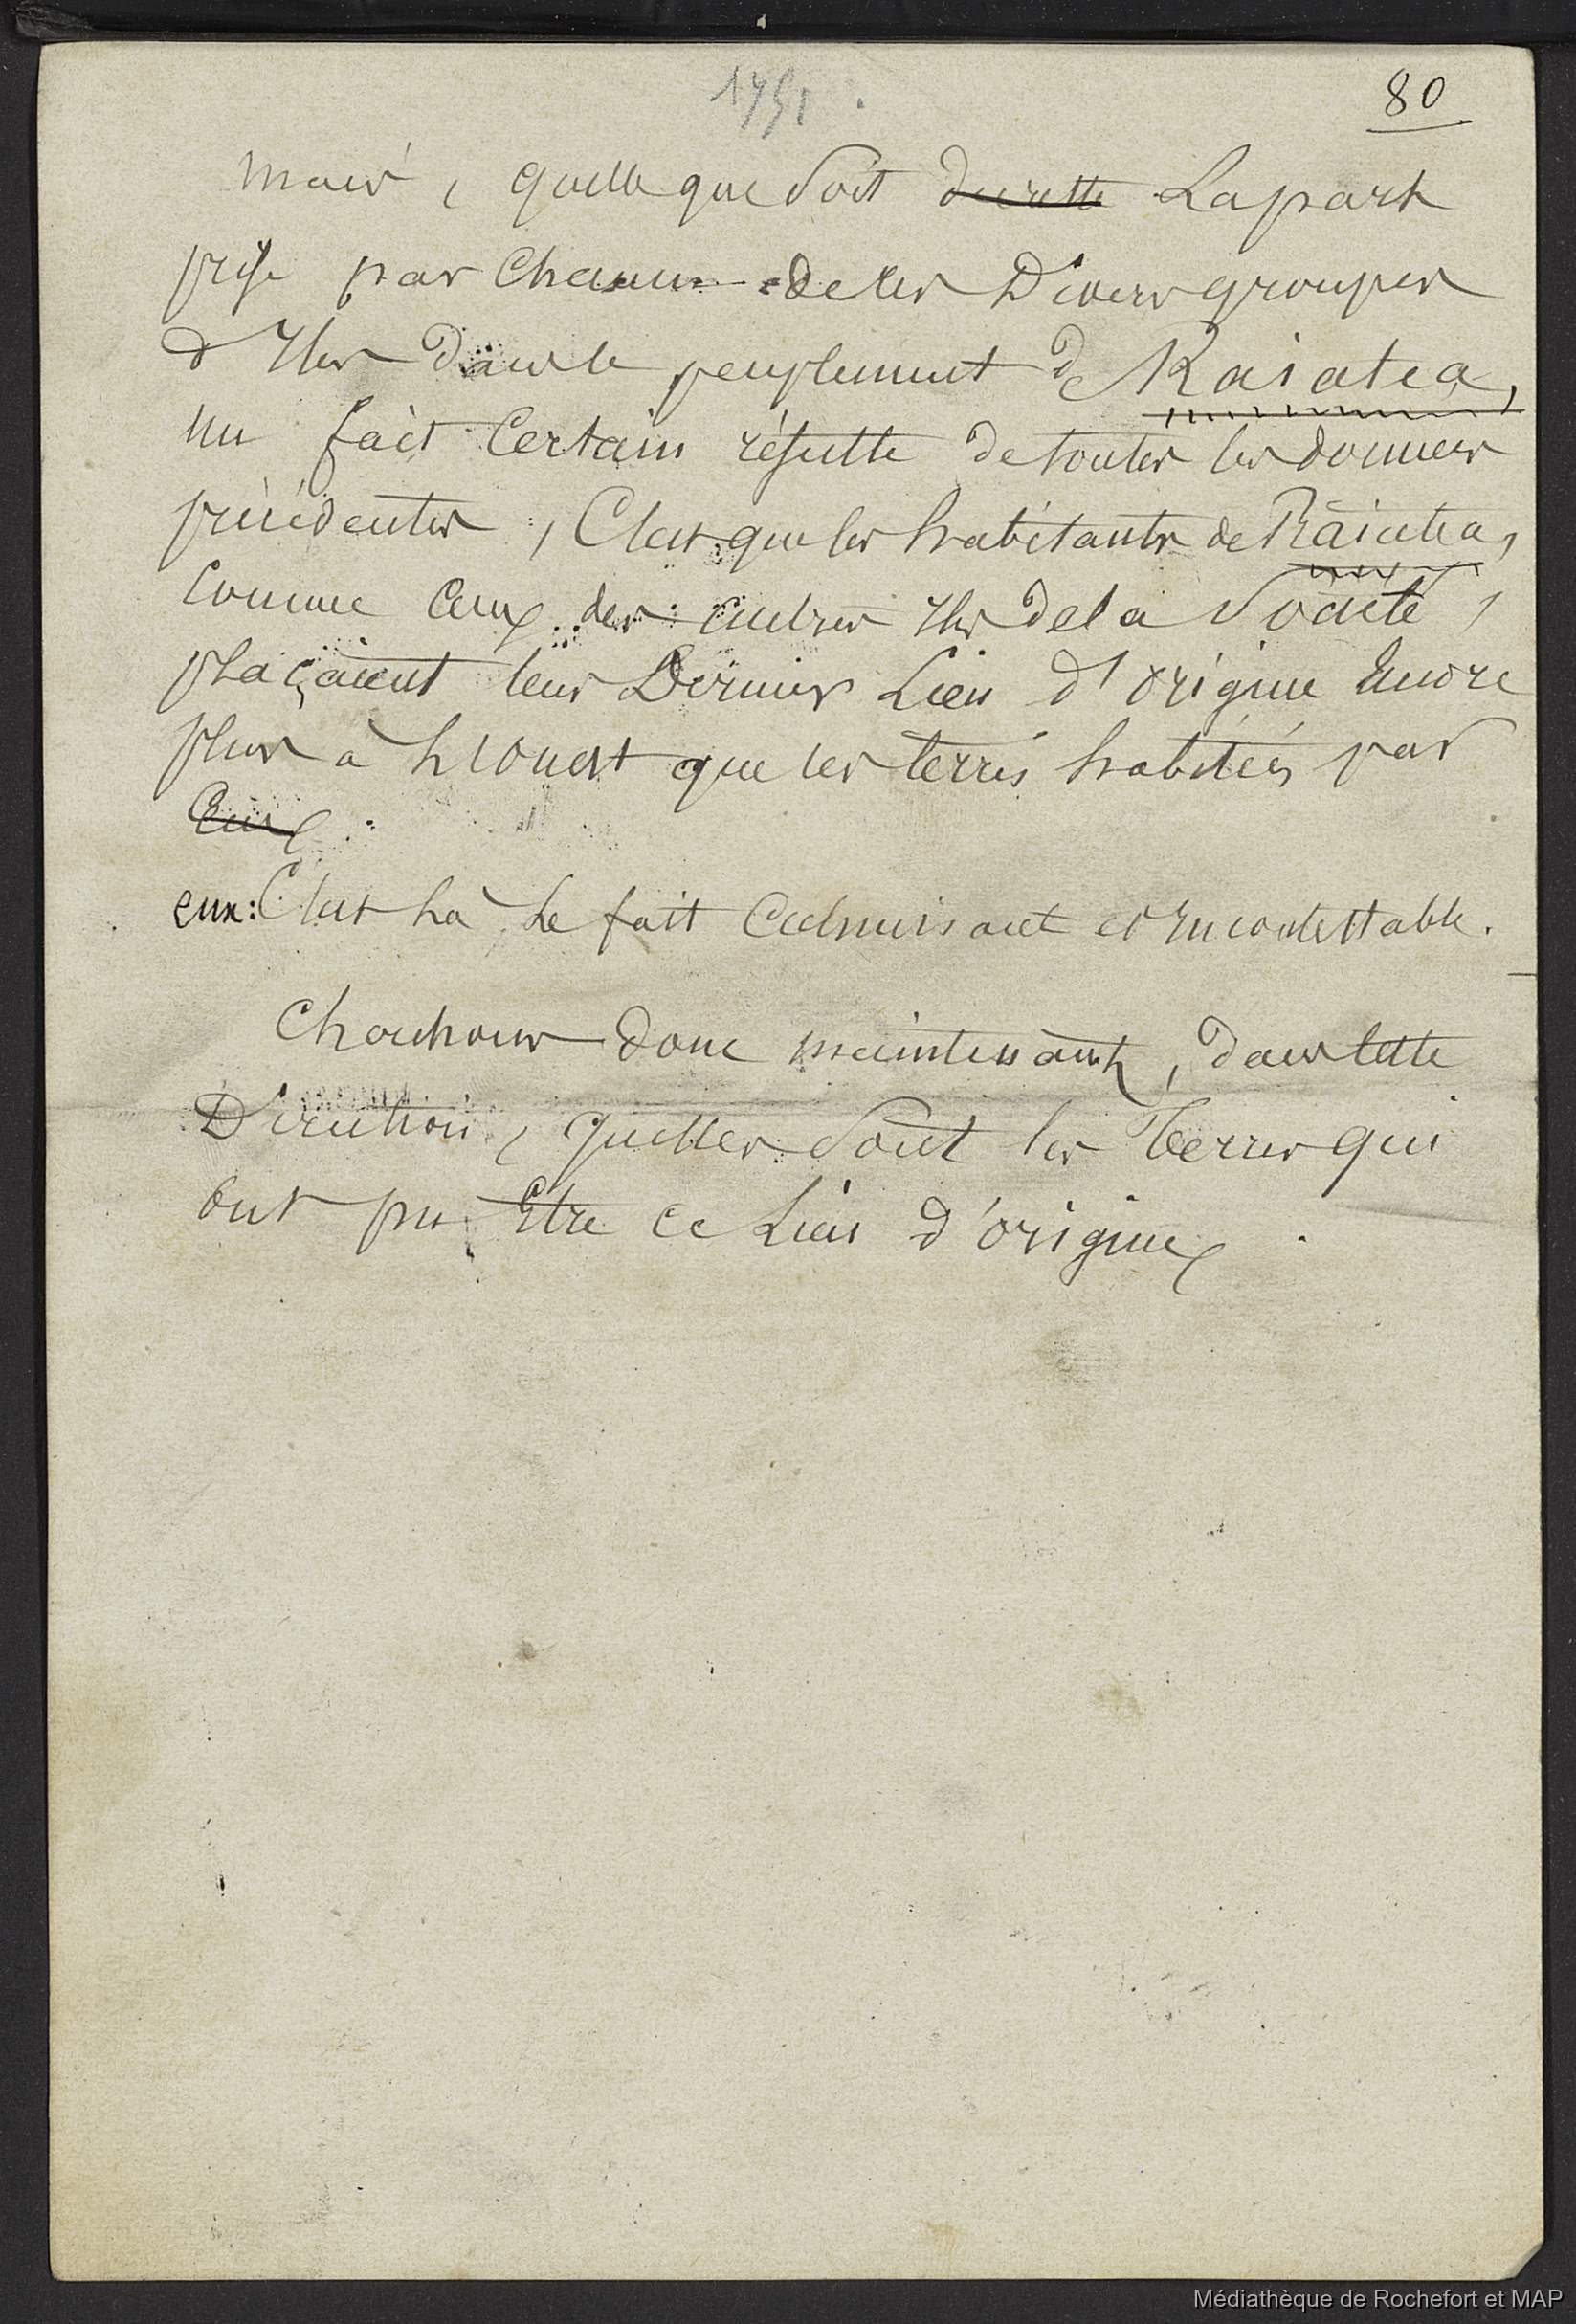 1751
80
mais, quelle que soit directe la part
prise par chacun de ces divers groupes
d'Iles dans le peuplement de Raiatea,
un fait certain résulte de toutes les données
précédentes, C'est que les habitants de Raiatea,
Comme Ceux des autres Iles de la Société,
plaçaient leur Dernier Lieu d'origine Encore
plus à l'Ouest que les terres habitées par
Eux
eux: C'est là le fait Cednuisant et Incontestable.
Cherchons donc maintenant, dans cette
Direction, quelles sont les Terres qui
ont pu Etre ce Lieu d'origine.
Médiathèque de Rochefort et MAP